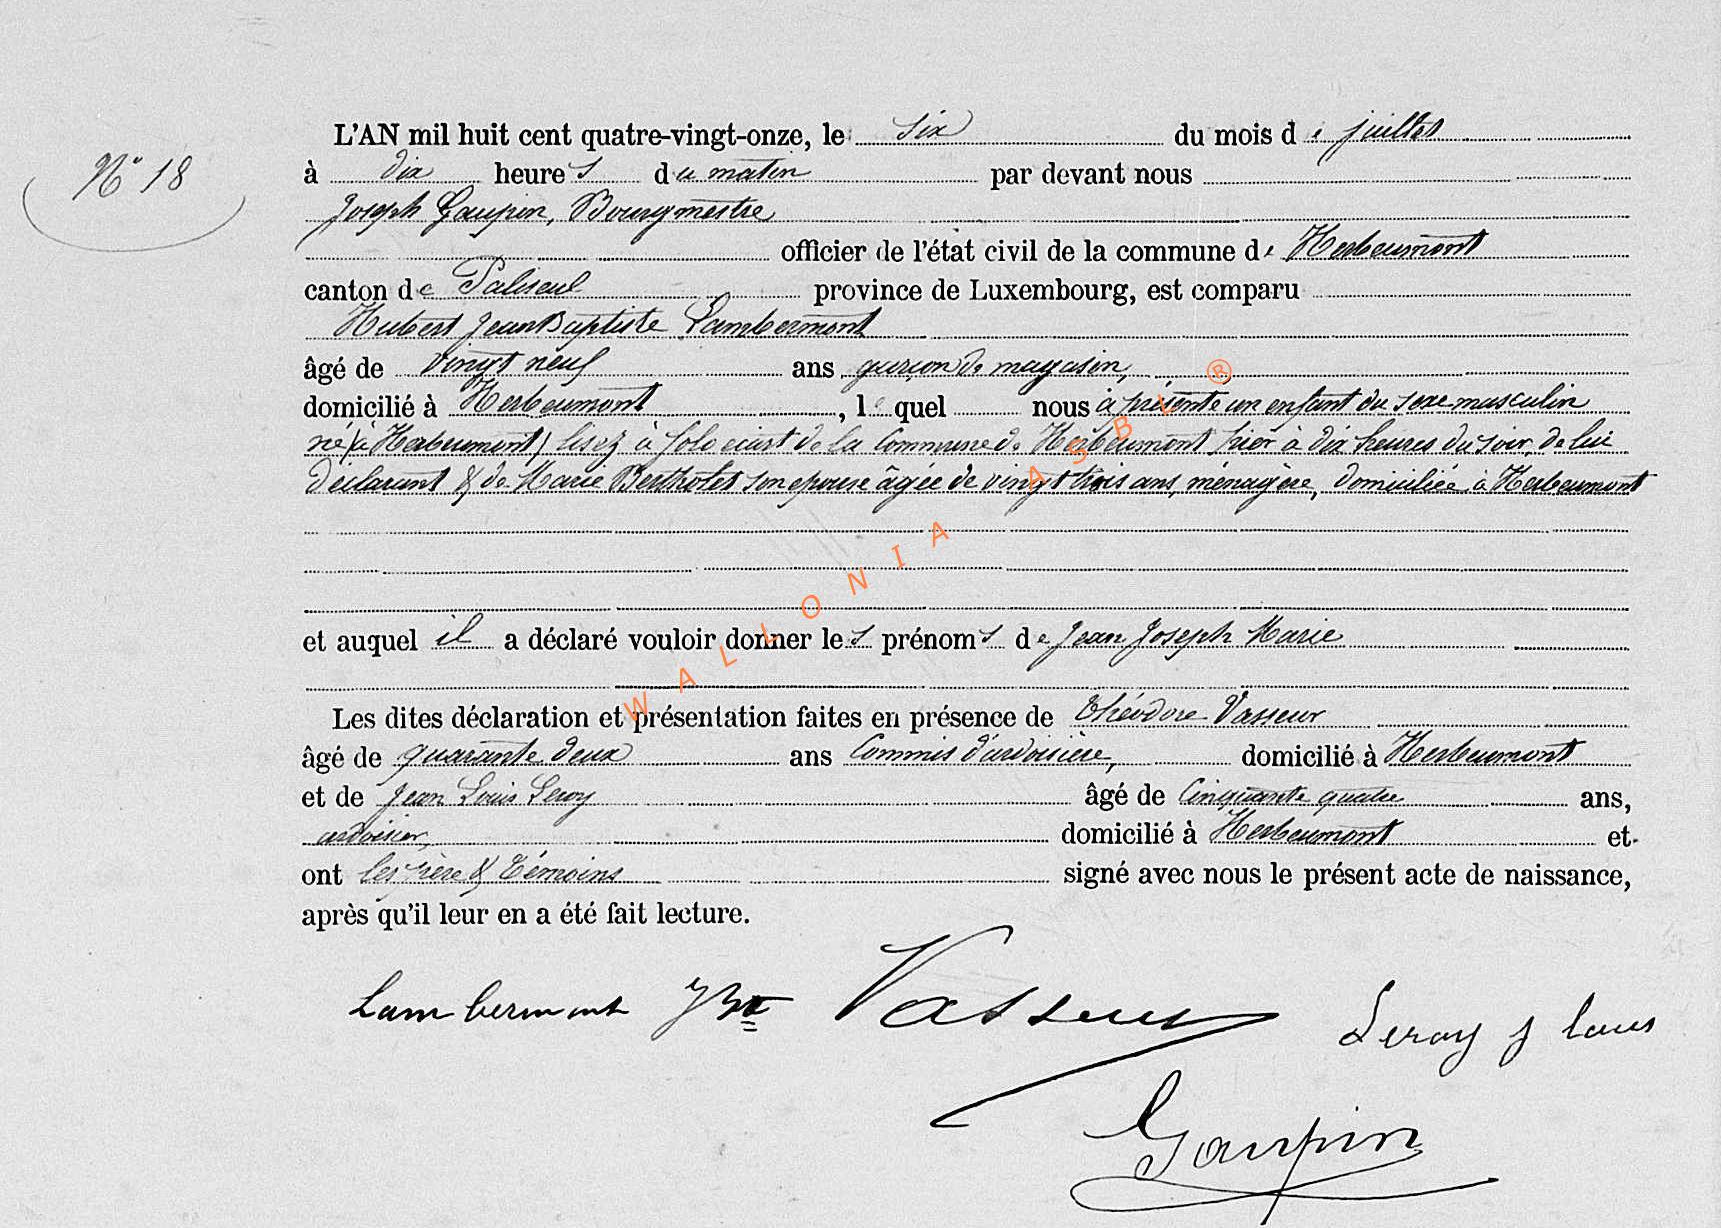 N° 18
L'AN mil huit cent quatre-vingt-onze, le six du mois de juillet
à dix heures du matin par devant nous
Joseph Gaupin, Bourgmestre
officier de l'état civil de la commune de Herbeumont
canton de Paliseul province de Luxembourg, est comparu
Hubert Jean Baptiste Lambermont
âgé de vingt neuf ans garçon de magasin,
domicilié à Herbeumont, lequel nous a présenté un enfant du sexe masculin
né (à Herbeumont) lisez à écart de la Commune de Herbeumont hier à dix heures du soir, de lui
déclarant & de Marie Bertholet son epouse âgée de vingt trois ans, ménagère, domiciliée à Herbeumont
et auquel il a déclaré vouloir donner les prénoms de Jean Joseph Marie
Les dites déclaration et présentation faites en présence de Théodore Vasseur
âgé de quarante deux ans Commis d'ardoisière, domicilié à Herbeumont
et de Jean Louis Leroy âgé de Cinquante quatre ans,
ardoisier, domicilié à Herbeumont et
ont les père & Témoins signé avec nous le présent acte de naissance,
après qu'il leur en a été fait lecture.
Lambermont Vasseur Leroy j louis
Gaupin
WALLONIA ASBL ®